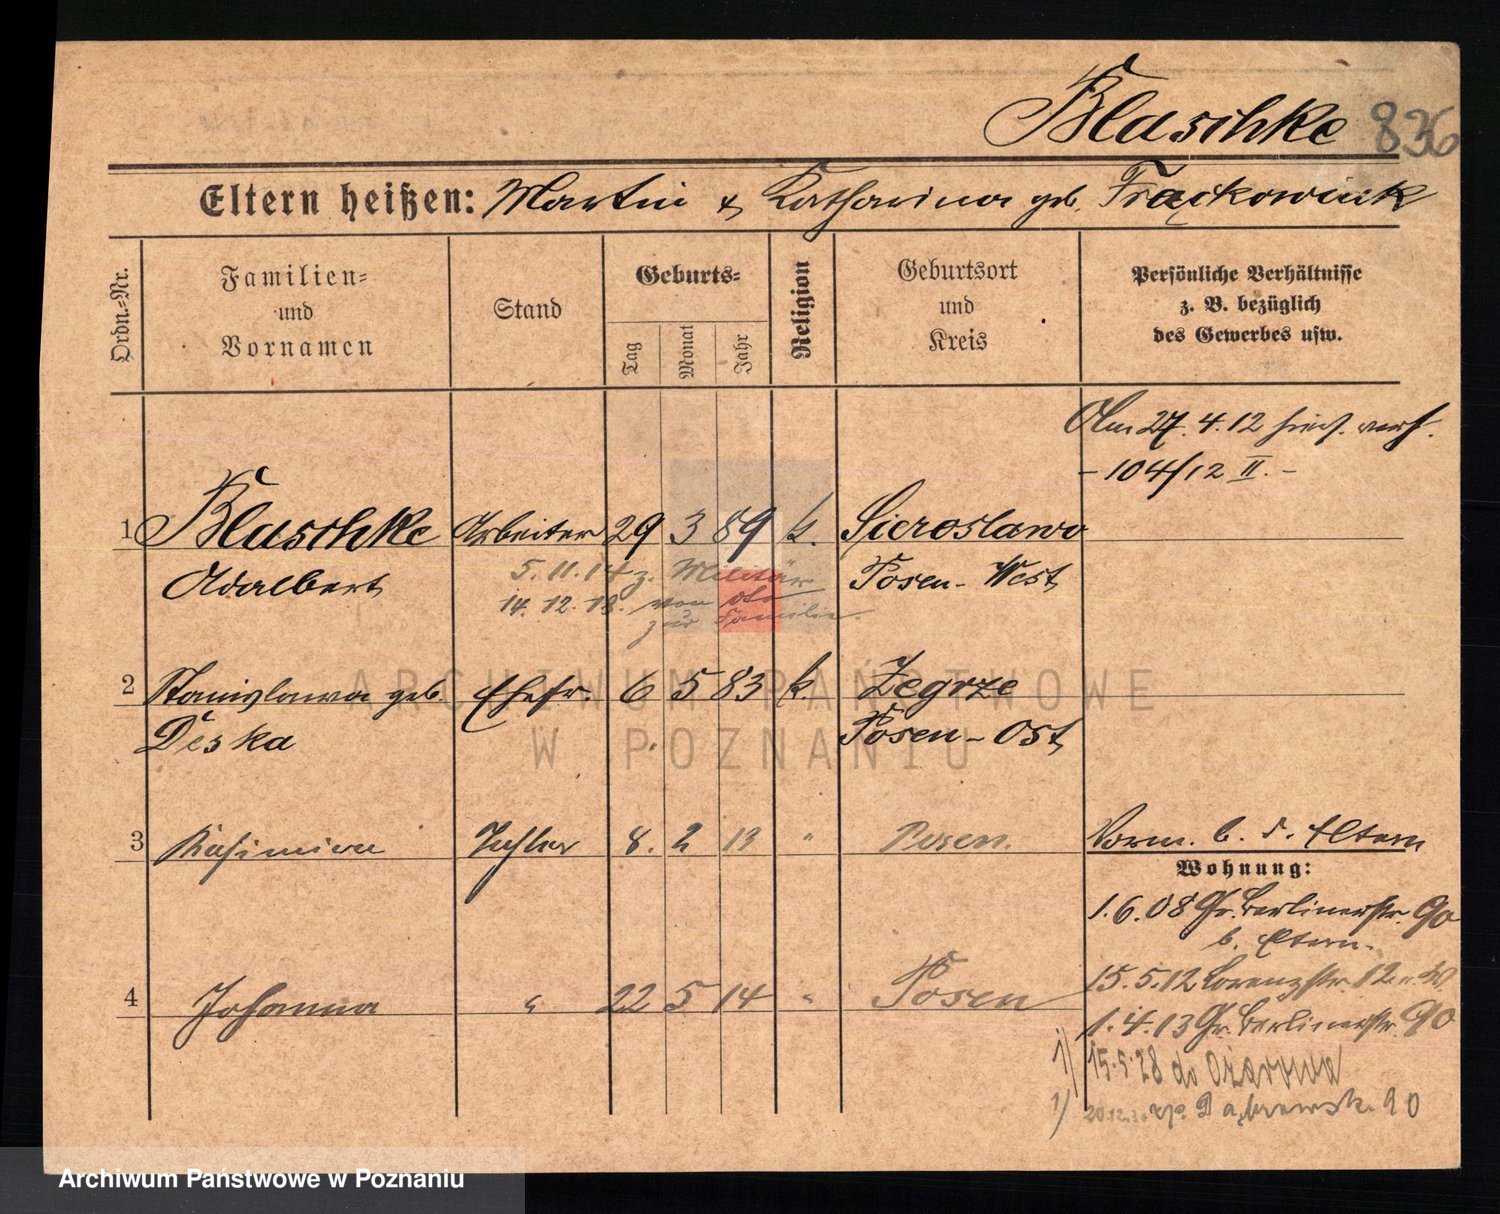 Blaschke 836
Eltern heißen: Martin & Katharina geb. Frąckowiak
Ordn.-Nr.
Familien-
und
Vornamen
Stand
Geburts-
Tag
Monat
Jahr
Religion
Geburtsort
und
Kreis
Persönliche Verhältnisse
z. B. bezüglich
des Gewerbes usw.
Am 27.4.12 hies. verh.
- 104/12 II. -
1 Blaschke Arbeiter 29 3 89 k. Sieroslawo
Adalbert Posen-West
5.11.14 z. Militär
14.12.18. von
zur Familie.
2 Stanislawa geb. Ehefr. 6 5 83 k Zegrze
Deska Posen-Ost
3 Kasimira Tochter 8. 2 13 " Posen.
Vorm. b. d. Eltern
Wohnung:
1.6.08 Gr. Berlinerstr. 90
b. Eltern.
4 Johanna " 22 5 14 " Posen
15.5.12 Lorenzstr. 12
1.4.13 Gr. Berlinerstr. 90
1) 15.5.28 do Ożarowa
1) Dąbrowsk. 90
ARCHIWUM PAŃSTWOWE
W POZNANIU
Archiwum Państwowe w Poznaniu